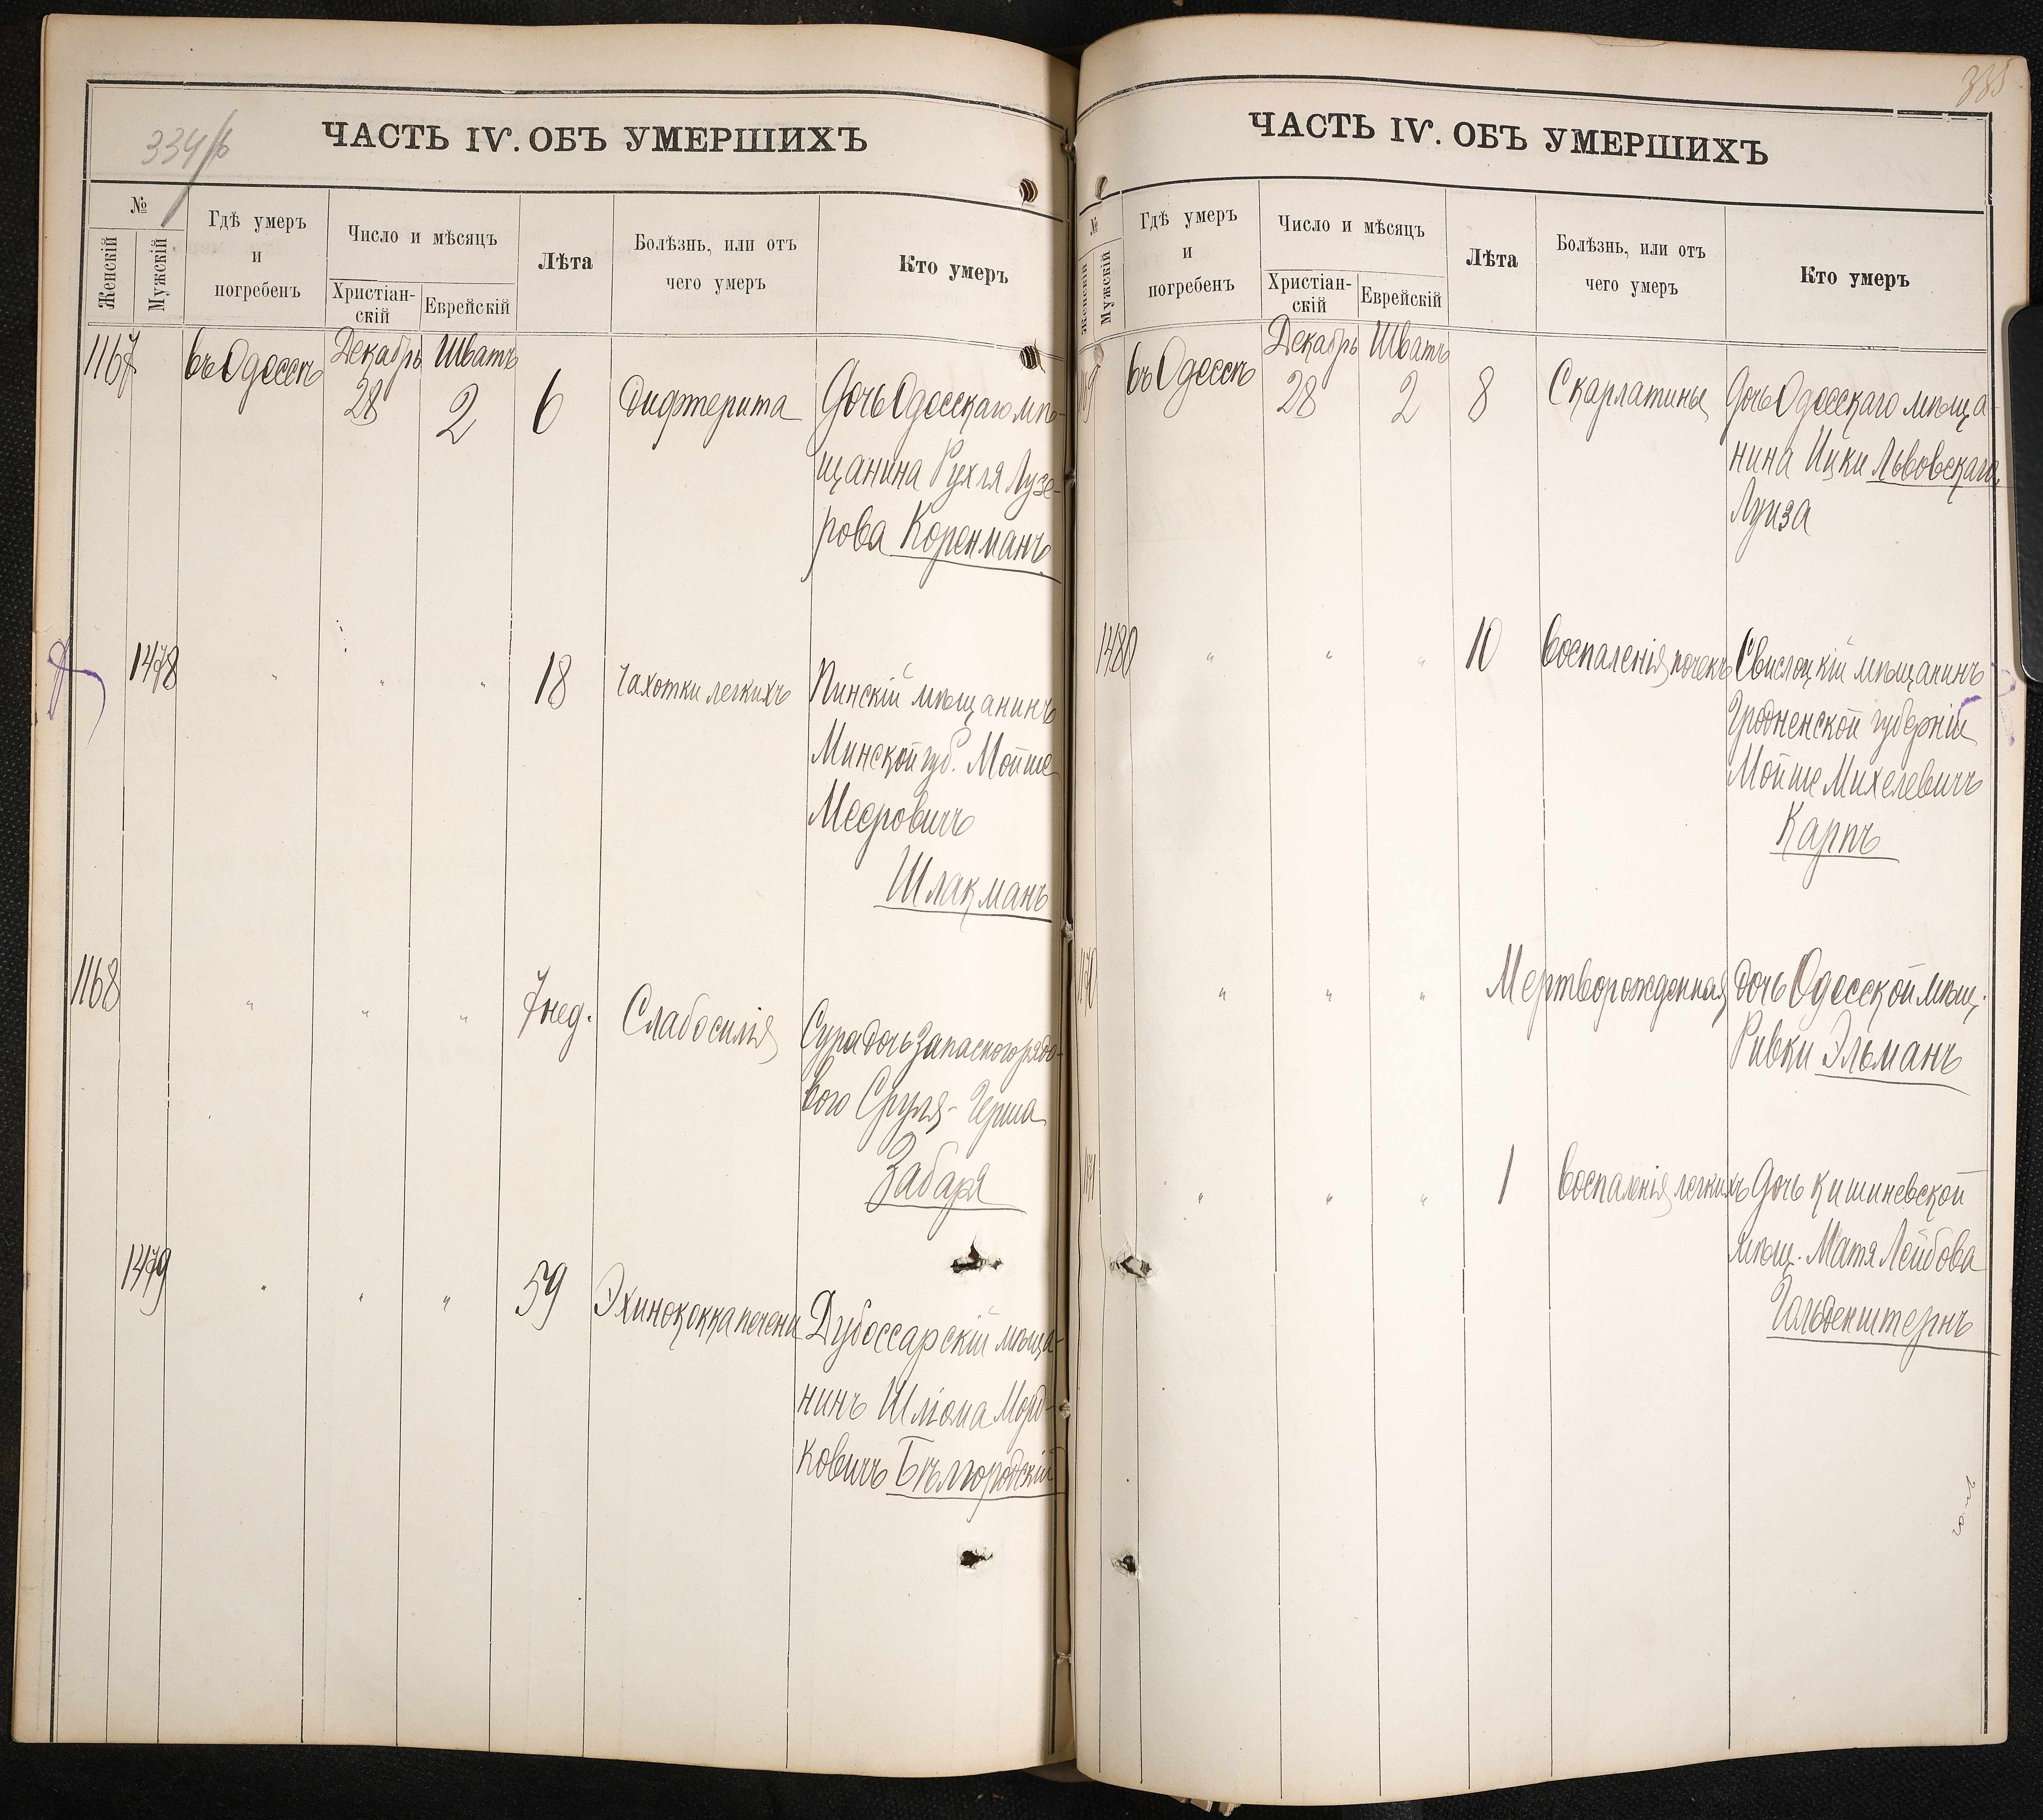 334/б
ЧАСТЬ IV. ОБЪ УМЕРШИХЪ
№
Женскій
Мужскій
Гдѣ умеръ
и
погребенъ
Число и мѣсяцъ
Христіан-
скій
Еврейскій
Лѣта
Болѣзнь, или отъ
чего умеръ
Кто умеръ
1167
въ Одессѣ
Декабрь
28
Шватъ
2
6
Дифтерита
Дочь Одесскаго мѣ-
щанина Рухля Лузе-
рова Коренманъ
1478
"
"
"
18
Чахотки легкихъ
Пинскій мѣщанинъ
Минской губ. Мойше
Мееровичъ
Шлакманъ
1168
"
"
"
7 нед.
Слабосилія
Сура дочь запасного рядо-
вого Сруля-Герша
Забаря
1479
"
"
"
59
Эхинококка печени
Дубоссарскій мѣща-
нинъ Шліома Морд-
ковичъ Бѣлгородскій
335
ЧАСТЬ IV. ОБЪ УМЕРШИХЪ
№
Женскій
Мужскій
Гдѣ умеръ
и
погребенъ
Число и мѣсяцъ
Христіан-
скій
Еврейскій
Лѣта
Болѣзнь, или отъ
чего умеръ
Кто умеръ
1169
въ Одессѣ
Декабрь
28
Шватъ
2
8
Скарлатины
Дочь Одесскаго мѣща-
нина Ицки Львовскаго,
Луиза
1480
"
"
"
10
Воспаленія почекъ
Свислоцкій мѣщанинъ
Гродненской губерніи
Мойше Михелевичъ
Карпъ
1170
"
"
"
Мертворожденная
дочь Одесской мѣщ.
Ривки Эльманъ
1171
"
"
"
1
Воспаленія легкихъ
Дочь Кишиневской
мѣщ. Матя Лейбова
Гальденштернъ